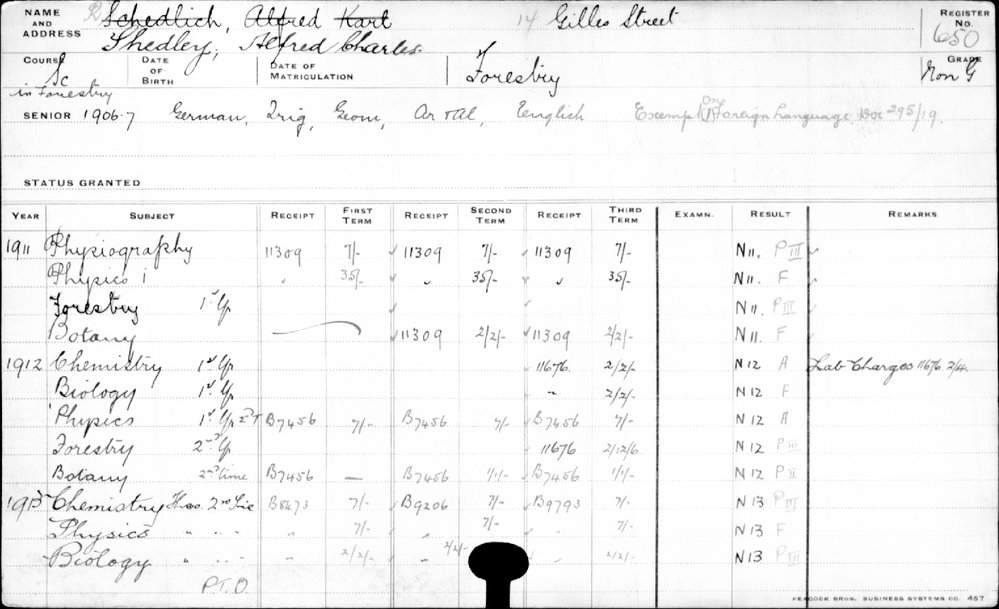 NAME AND ADDRESS Schedlich, Alfred Karl 14 Gilles Street REGISTER No. 650
Shedley, Alfred Charles
COURSE Sc in Forestry DATE OF BIRTH DATE OF MATRICULATION Forestry GRADE Non G
SENIOR 1906-7 German, Trig, Geom, Ar & Al, English Exempt Foreign Language 295/19.
STATUS GRANTED
YEAR SUBJECT RECEIPT FIRST TERM RECEIPT SECOND TERM RECEIPT THIRD TERM EXAMN. RESULT REMARKS
1911 Physiography 11309 7/- ✓ 11309 7/- ✓ 11309 7/- N11. P III ✓
Physics 1 " 35/- ✓ " 35/- ✓ " 35/- N11. F
Forestry 1st Yr ✓ ✓ N11. P III ✓
Botany ✓ 11309 2/2/- ✓ 11309 2/2/- N11. F
1912 Chemistry 1st Yr 11676. 2/2/- N12 A Lab Charges 11676 2/4.
Biology 1st Yr " 2/2/- N12 F
Physics 1st Yr 2nd T B7456 7/- B7456 7/- B7456 7/- N12 A
Forestry 2nd Yr 11676 2/12/6 N12 P III
Botany 2nd time B7456 — B7456 1/1/- B7456 1/1/- N12 P II
1913 Chemistry B8473 7/- B9206 7/- B9793 7/- N13 P III
Physics " " " " 7/- " 7/- " 7/- N13 F
Biology " " " " 2/2/- " 2/2/- " 2/2/- N13 P III
P.T.O.
PEACOCK BROS. BUSINESS SYSTEMS CO. 457